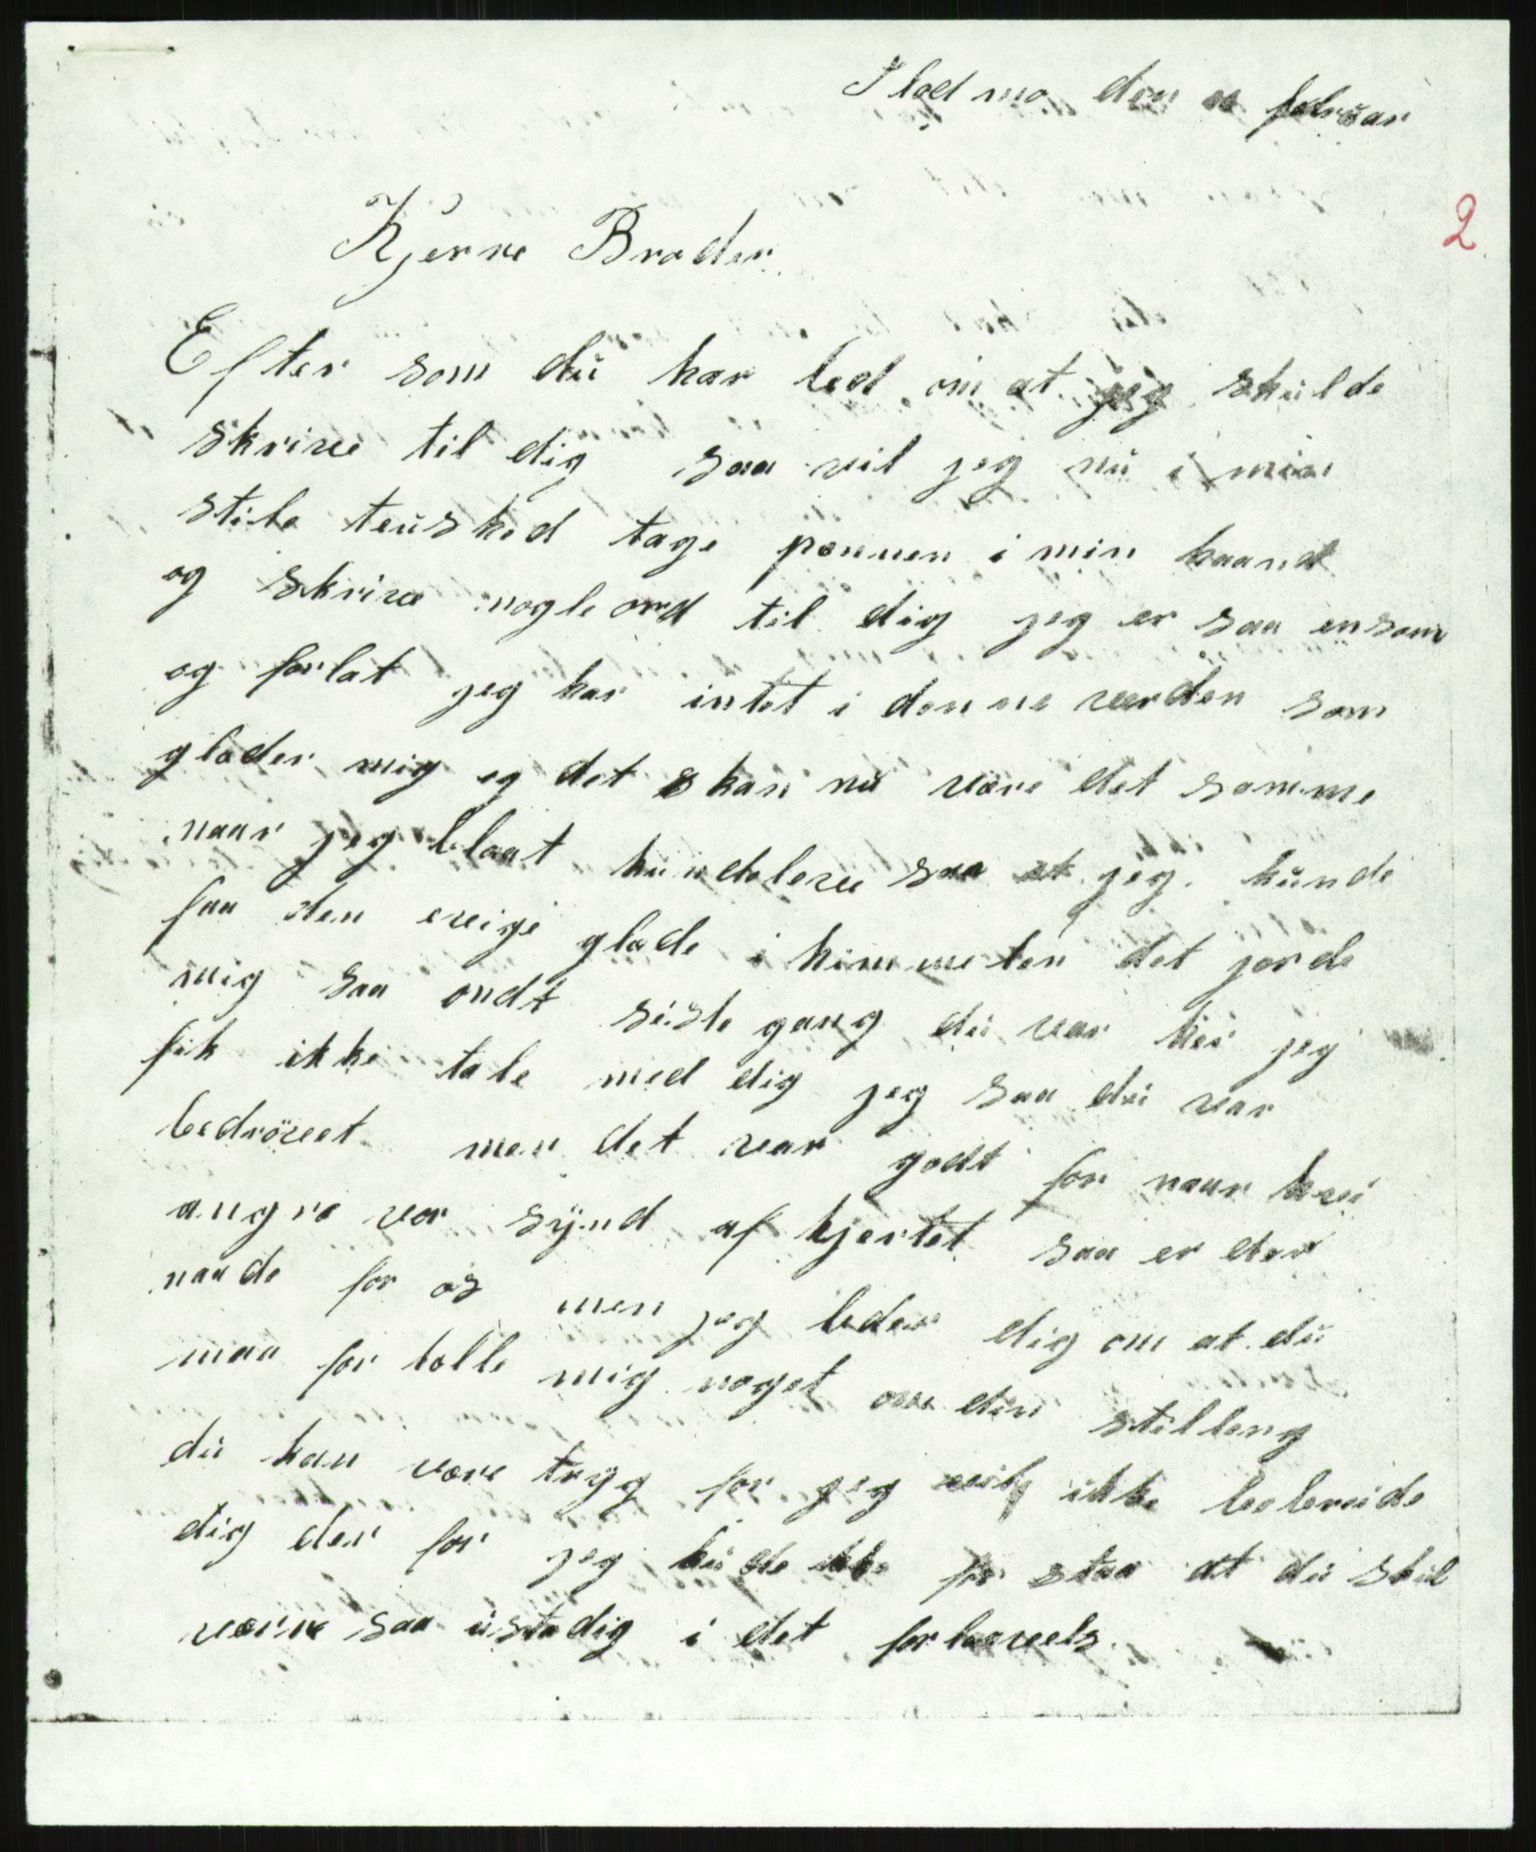 den februar
2
Kjerre Broder
Efter som du har bed om at jeg skulde
skrive til dig saa vil jeg nu i min
stile teushed tage pennen i min haand
og skrive nogle ord til dig jeg er saa ensom
og forlat jeg har intet i denne verden som
glader mig og det skan nu være det samme
naar jeg blaat kunde leve saa at jeg kunde
faa den evige glade i himmelen det jorde
mig saa ondt siste gang du var her jeg
fik ikke tale med dig jeg saa du var
bedrövet men det var godt for naar hvi
angre vor synd af hjertet saa er der
naade for os men jeg beder dig om at du
maa for telle mig noget om din stilleng
du kan være tryg for jeg vil ikke bebreide
dig der for jeg kude ikke for staa at du skul
være saa ustadig i det